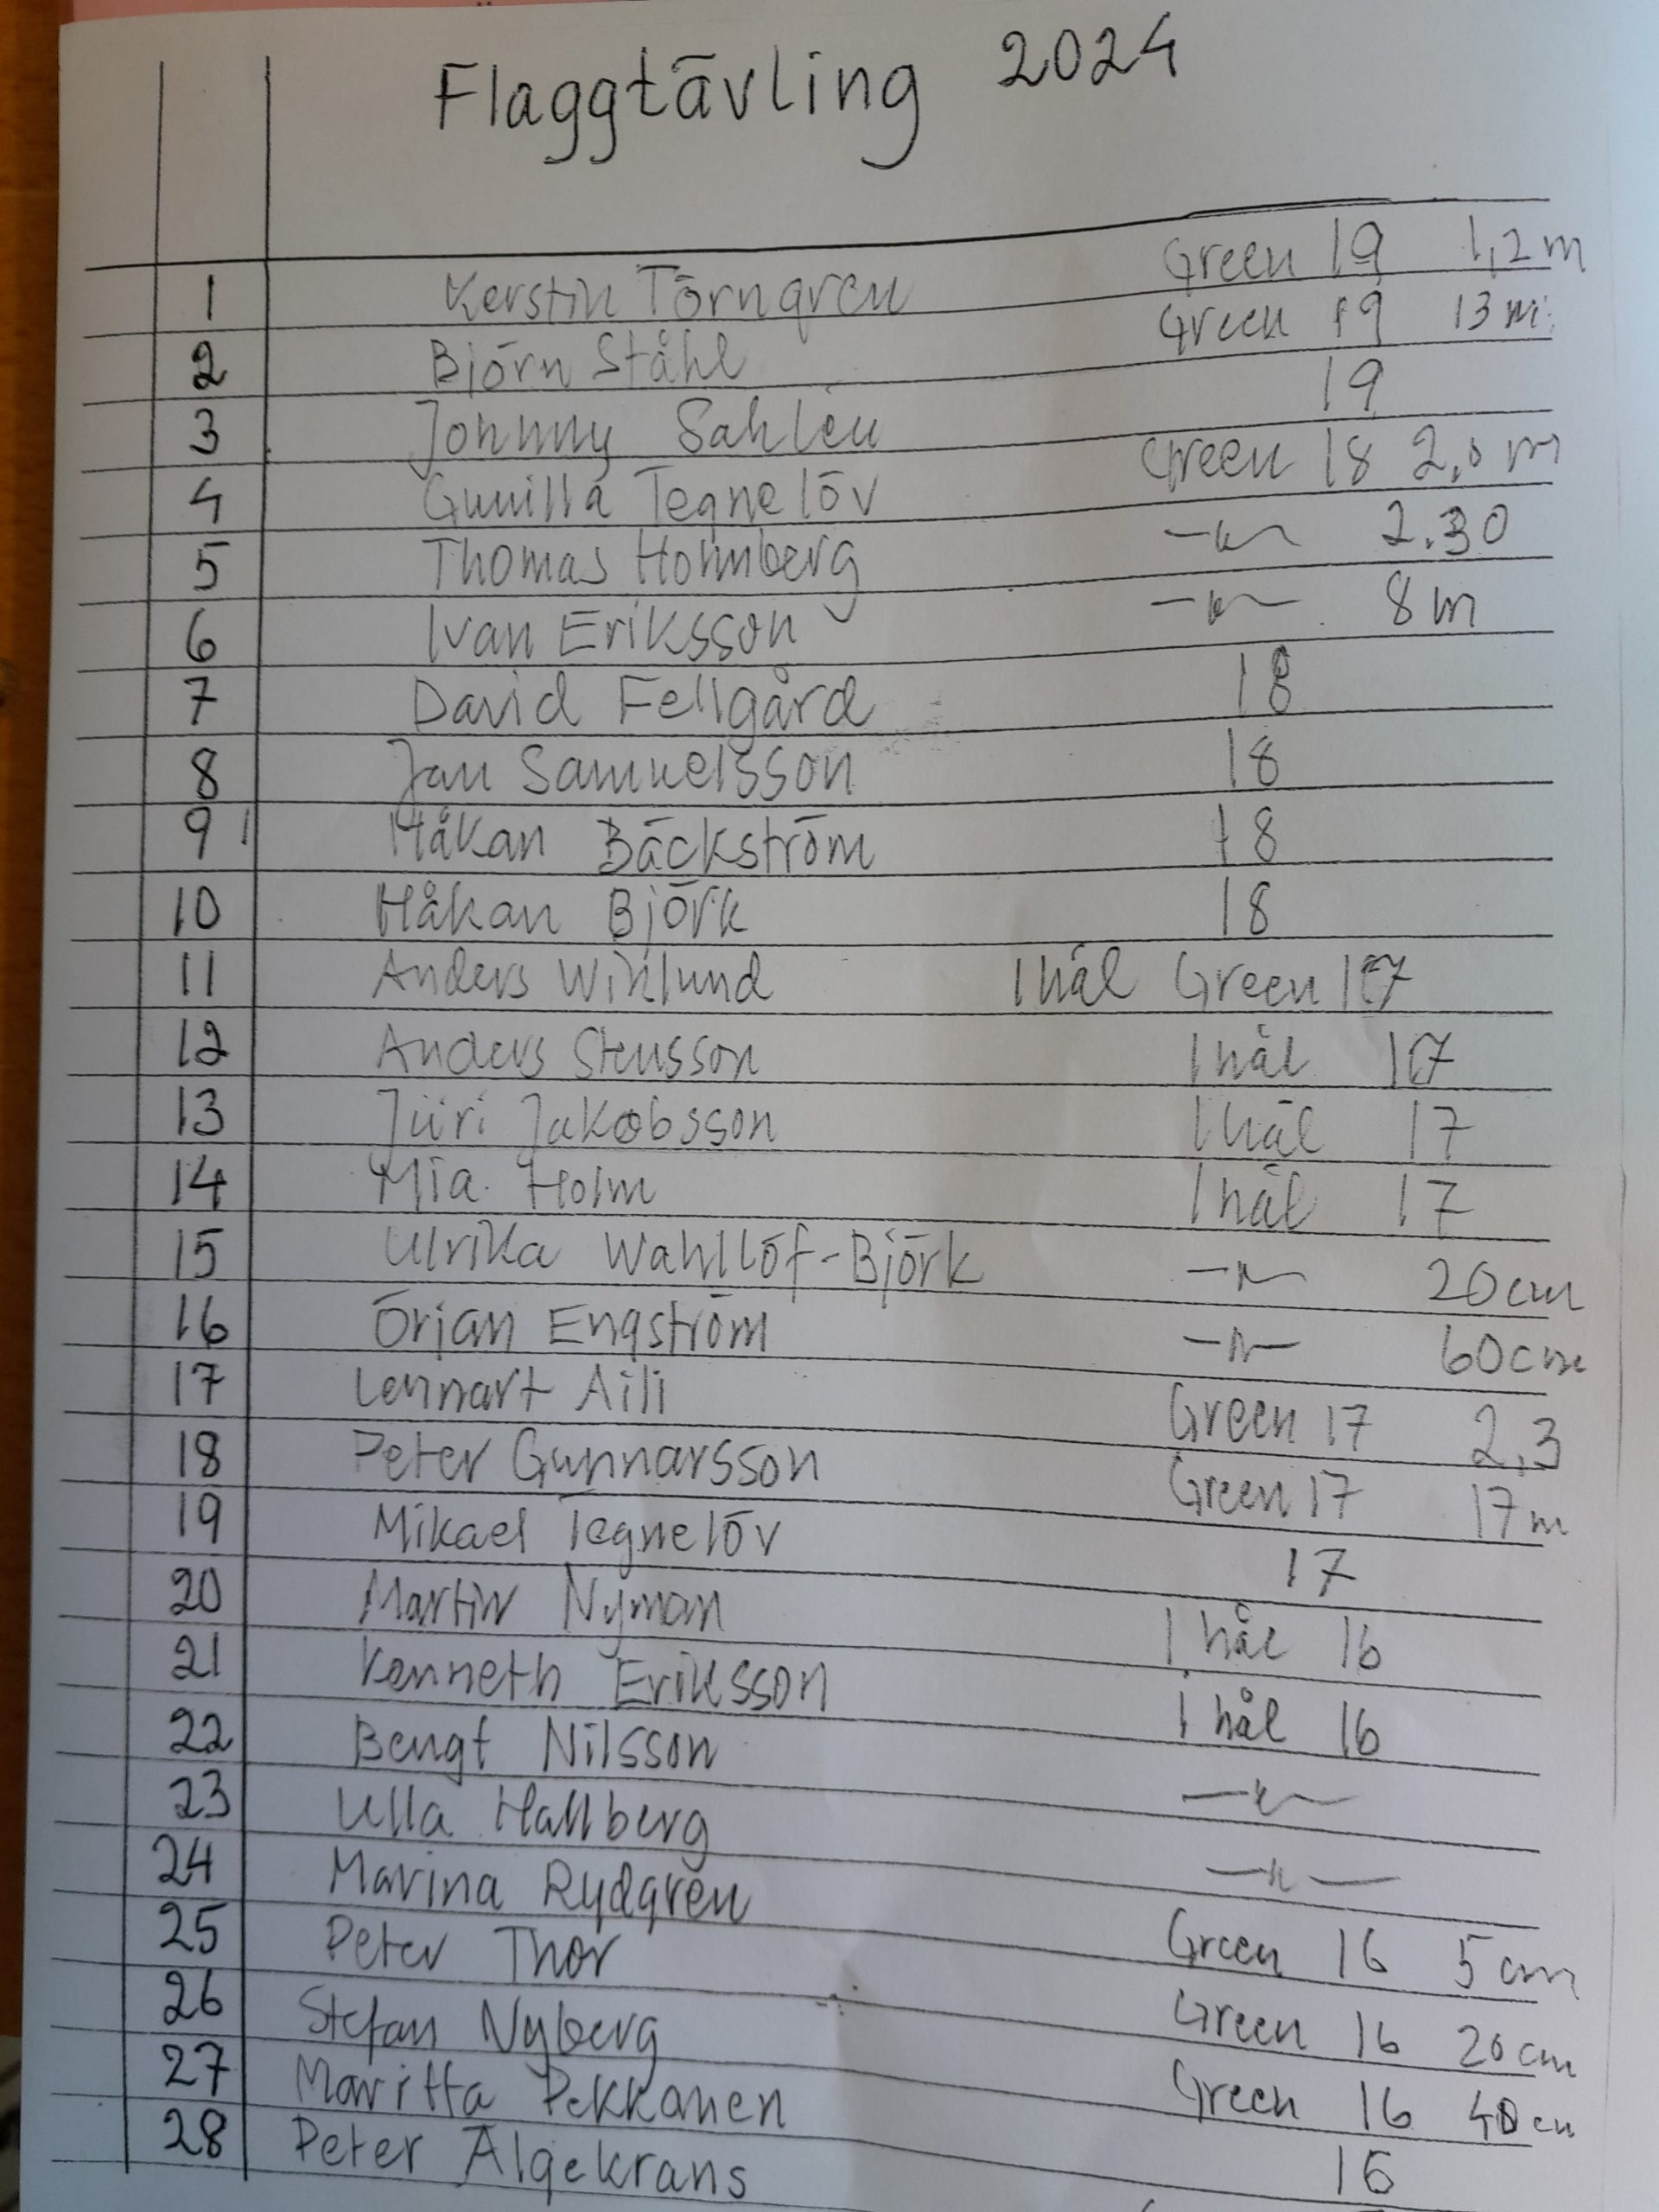 Flaggtävling 2024
1 Kerstin Törngren Green 19 1,2 m
2 Björn Ståhl Green 19 13 m
3 Johnny Sahlén 19
4 Gunilla Tegnelöv Green 18 2,0 m
5 Thomas Holmberg —"— 2.30
6 Ivan Eriksson —"— 8 m
7 David Fellgård 18
8 Jan Samuelsson 18
9 Håkan Bäckström 18
10 Håkan Björk 18
11 Anders Wiklund I hål Green 17
12 Anders Stensson I hål 17
13 Jüri Jakobsson I hål 17
14 Mia Holm I hål 17
15 Ulrika Wahllöf-Björk —"— 20 cm
16 Örjan Engström —"— 60 cm
17 Lennart Aili Green 17 2,3
18 Peter Gunnarsson Green 17 17 m
19 Mikael Tegnelöv 17
20 Martin Nyman I hål 16
21 Kenneth Eriksson I hål 16
22 Bengt Nilsson —"—
23 Ulla Hallberg —"—
24 Marina Rydgren Green 16 5 cm
25 Peter Thor Green 16 20 cm
26 Stefan Nyberg Green 16 40 cm
27 Maritta Pekkanen 16
28 Peter Älgekrans